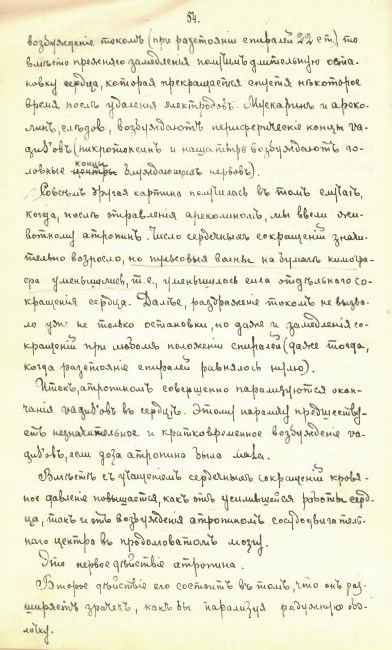 54.
возбужденіе токомъ (при разстояніи спиралей 22 с.т.) то
вмѣсто прежняго замедленія получимъ длительную оста-
новку сердца, которая прекращается спустя нѣкоторое
время послѣ удаленія электродовъ. Мускаринъ и ареко-
линъ, слѣдов., возбуждаютъ периферическіе концы ва-
гус'овъ (пикротоксинъ и нашатырь возбуждаютъ го-
концы
ловные центры блуждающихъ нервовъ).
Совсѣмъ другая картина получилась въ томъ случаѣ,
когда, послѣ отравленія ареколиномъ, мы ввели жи-
вотному атропинъ. Число сердечныхъ сокращеній значи-
тельно возросло, но пульсовыя волны на бумагѣ кимогра-
фа уменьшились, т.е., уменьшилась сила отдѣльнаго со-
кращенія сердца. Далѣе, раздраженіе токомъ не вызва-
ло уже не только остановки, но даже и замедленія со-
кращеній при любомъ положеніи спиралей (даже тогда,
когда разстояніе спиралей равнялось нулю).
Итакъ, атропиномъ совершенно парализуются окон-
чанія вагус'овъ въ сердцѣ. Этому параличу предшеству-
етъ незначительное и кратковременное возбужденіе ва-
гус'овъ, если доза атропина была мала.
Вмѣстѣ съ учащеніемъ сердечныхъ сокращеній кровя-
ное давленіе повышается, какъ отъ усилившейся работы серд-
ца, такъ и отъ возбужденія атропиномъ сосудодвигатель-
наго центра въ продолговатомъ мозгу.
Это первое дѣйствіе атропина.
Второе дѣйствіе его состоитъ въ томъ, что онъ рас-
ширяетъ зрачекъ, какъ бы парализуя радужную обо-
лочку.